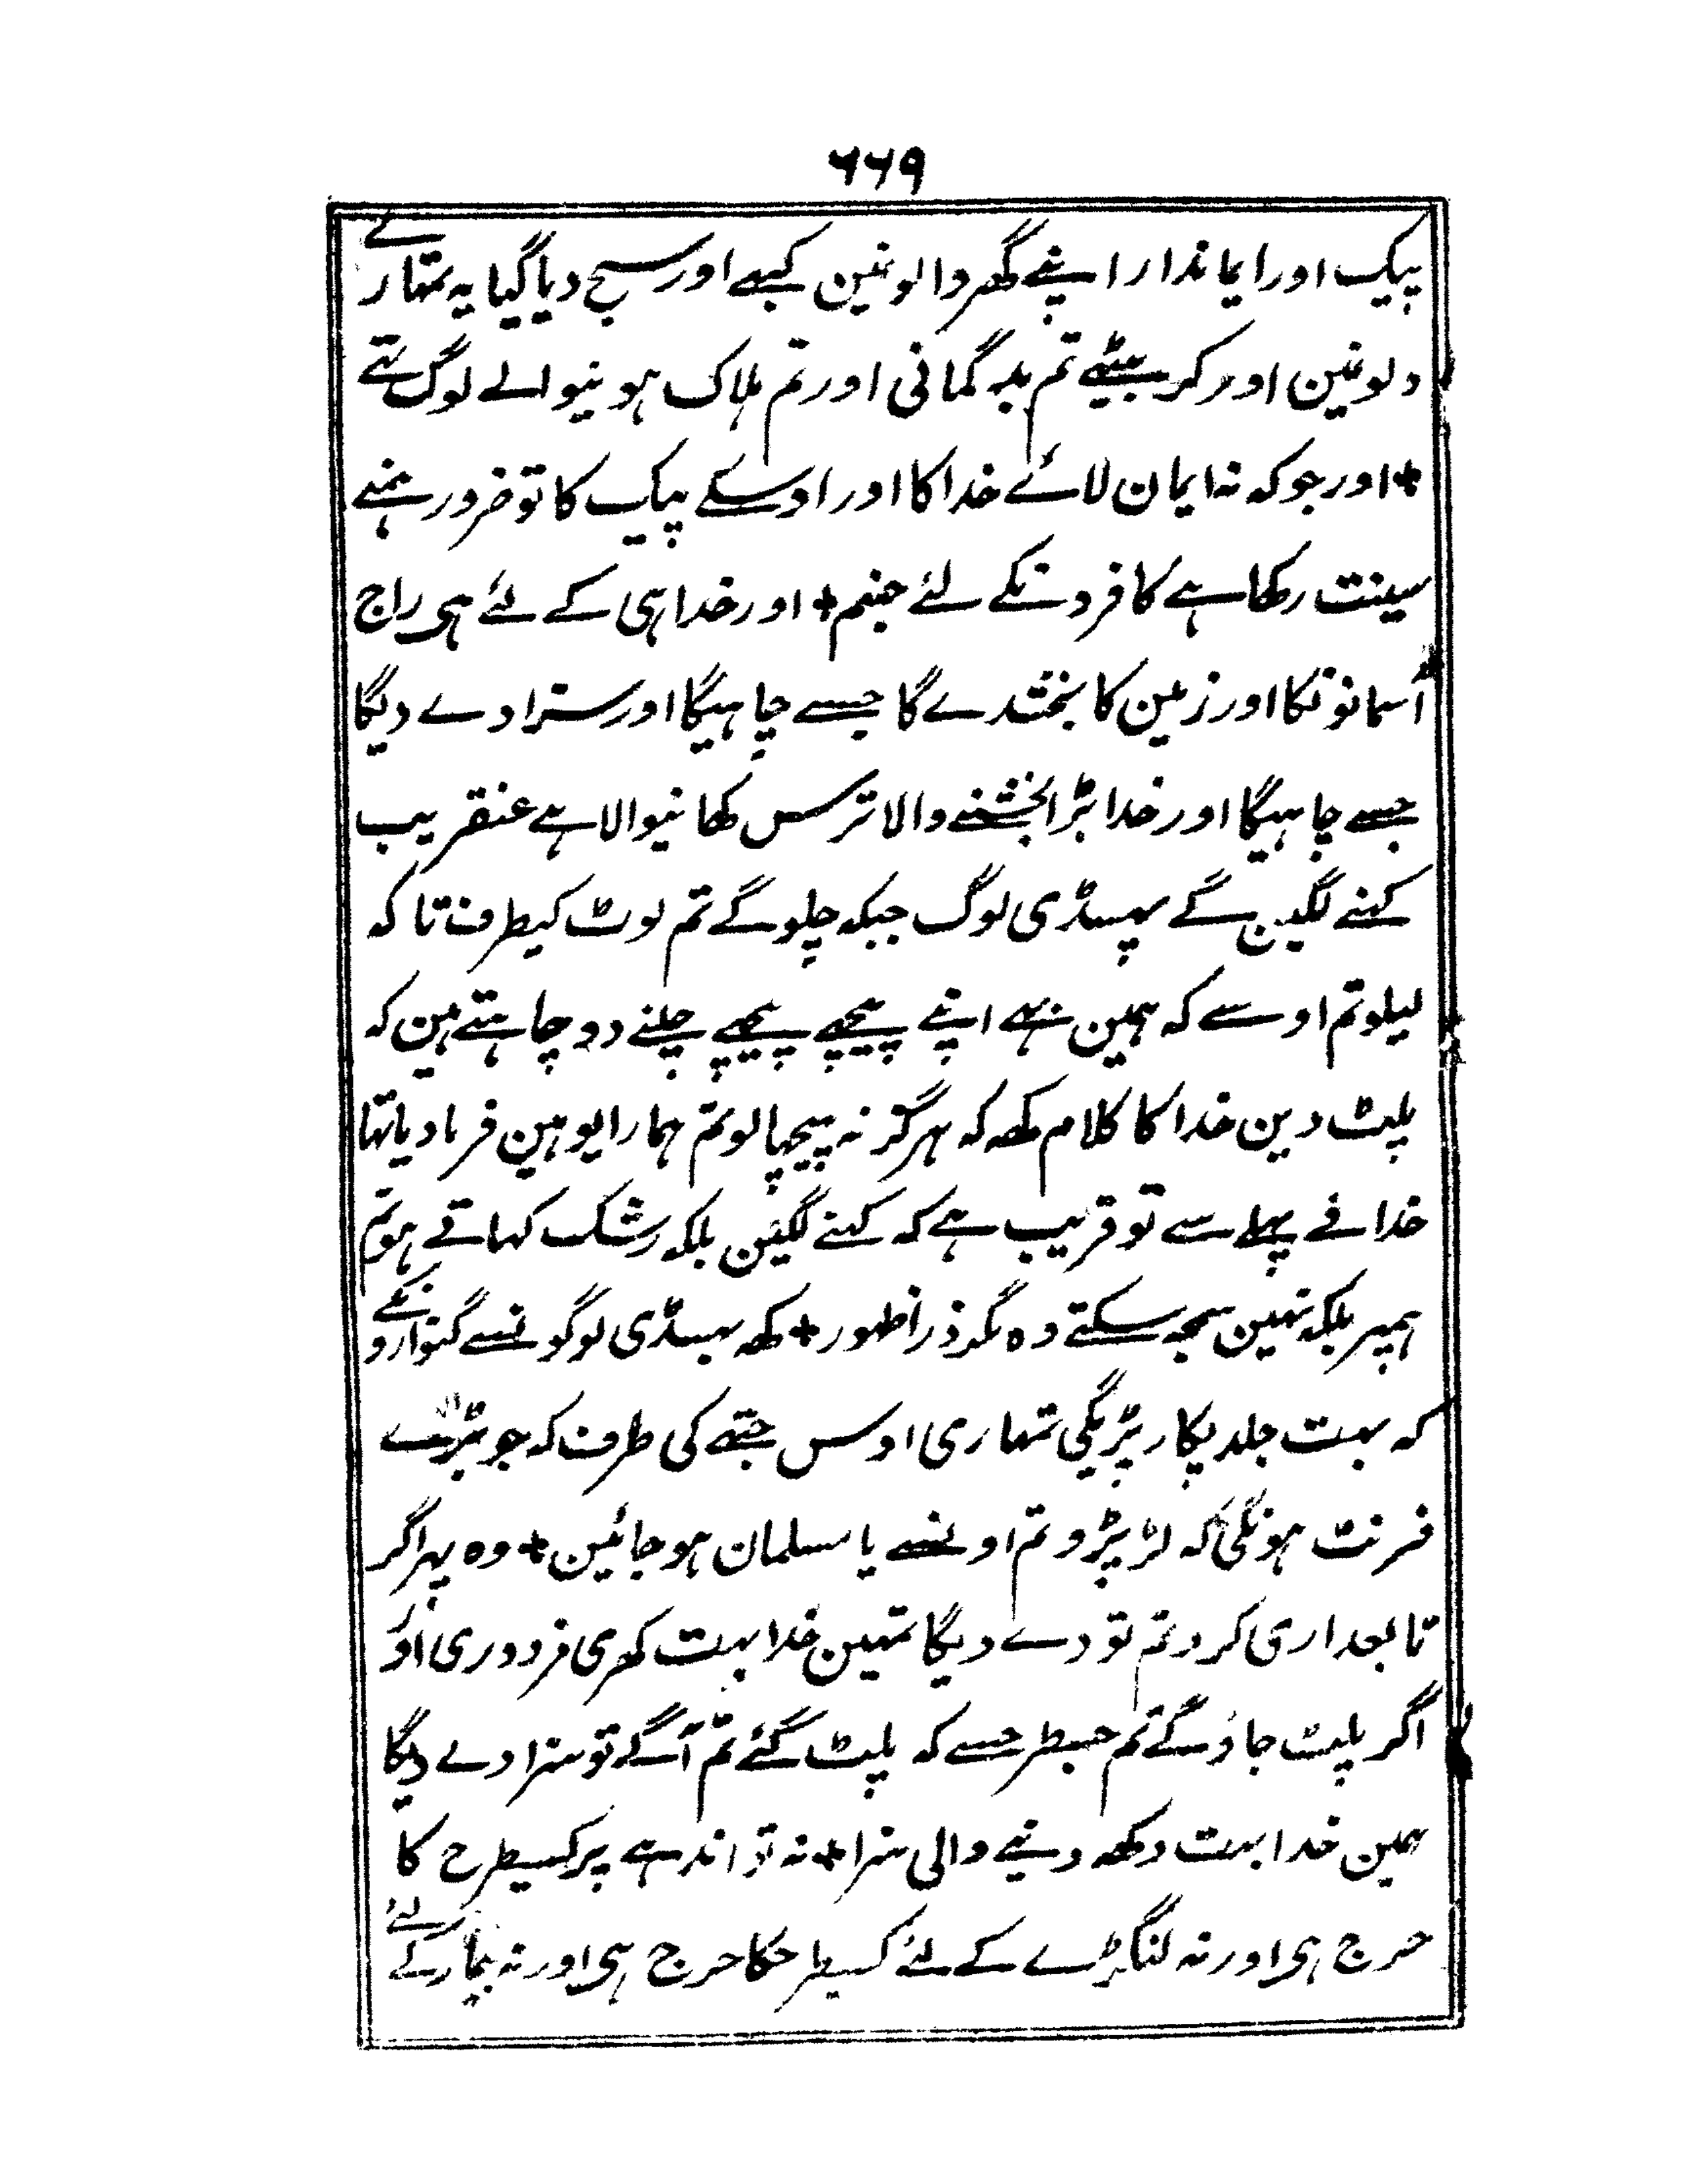 ۶۶۹
پیک اور ایماندار اپنے گھر والونمین کبہے اور سج دیا گیا یہ تمہارے
دلونمین اور کر بیٹھے تم بدگمانی اور تم ہلاک ہونیوالے لوگ تہے
+ اور جو کہ نہ ایمان لائے خدا کا اور اوسکے پیک کا تو ضرور ہمنے
سینت رکھا ہے کافرونکے لئے جہنم + اور خدا ہی کے لئے ہی راج
آسمانونکا اور زمین کا بخشدے گا جسے چاہیگا اور سزا دے دیگا
جسے چاہیگا اور خدا بڑا بخشنے والا ترس کھانیوالا ہے عنقریب
کہنے لگین گے پہسڈی لوگ جبکہ چلو گے تم لوٹ کیطرف تاکہ
لیلو تم اوسے کہ ہمین بہے اپنے پیچھے پیچھے چلنے دو چاہتے ہین کہ
پلٹ دین خدا کا کلام کھہ کہ ہرگز نہ پیچہا لو تم ہمارا یوہین فرما دیا تہا
خدا نے پہلے سے تو قریب ہے کہ کہنے لگین بلکہ رشک کہاتے ہو تم
ہمپر بلکہ نہین سمجہ سکتے وہ مگر ذرا ظہور + کھہ پہسڈی لوگونسے گنوارونکے
کہ بہت جلد پکار پڑیگی تمہاری اوس جتھے کی طرف کہ جو بڑے
فرنٹ ہونگی کہ لڑ پڑو تم اونسے یا مسلمان ہو جائین + وہ پہر اگر
تابعداری کرو تم تو دے دیگا تمہین خدا بہت کھری مزدوری اور
اگر پلٹ جاؤ گے تم جسطرحسے کہ پلٹ گئے تم آگے تو سزا دے دیگا
ہمین خدا بہت دکھہ دینے والی سزا + نہ تو اندہے پر کسیطرح کا
حرج ہی اور نہ لنگڑے کے لئے کسیطرحکا حرج ہی اور نہ بیمار کے لئے